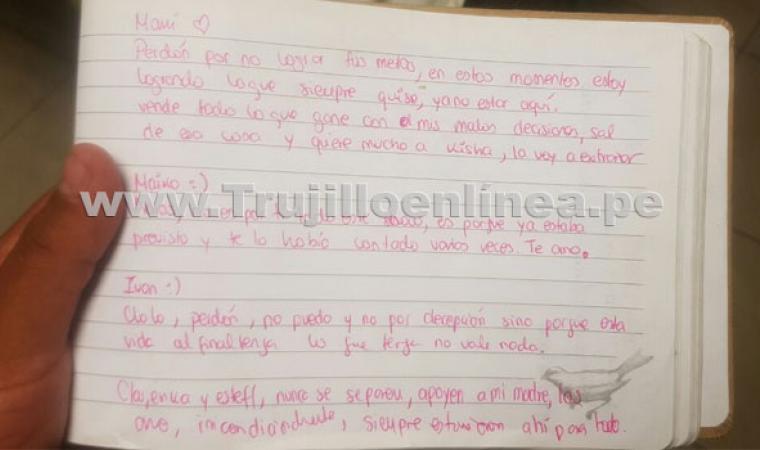 Mami ♡
Perdón por no lograr tus metas, en estos momentos estoy
logrando lo que siempre quise, ya no estar aquí.
vende todo lo que gane con mis malas decisiones, sal
de esa casa y quiere mucho a Kisha, la voy a extrañar
:)
www.Trujilloenlínea.pe
es porque ya estaba
previsto y te lo había contado varias veces. Te amo.
Ivan :)
Cholo, perdón, no puedo y no por decepción sino porque esta
vida al final tenga lo que tenga no vale nada.
y esteff, nunca se separen, apoyen a mi madre, las
amo, siempre estuvieron ahí para todo.